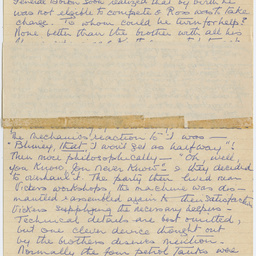 General Borton soon realized that by birth he
was not eligible to compete & Ross was to take
charge. To whom could he turn for help?
None better than the brother with all his
The mechanics reaction to it was —
"Blimey, that won't get us halfway"!
Then more philosophically — "Oh, well,
you know, you never know". & they decided
to overhaul it. Then they hired near
Vickers workshops, the machine was dis-
mantled & reassembled again to their satisfaction
Vickers supplying the necessary helpers —
Technical details are best omitted,
but one clever device thought out
by the brothers deserves mention.
Normally the four petrol tanks were